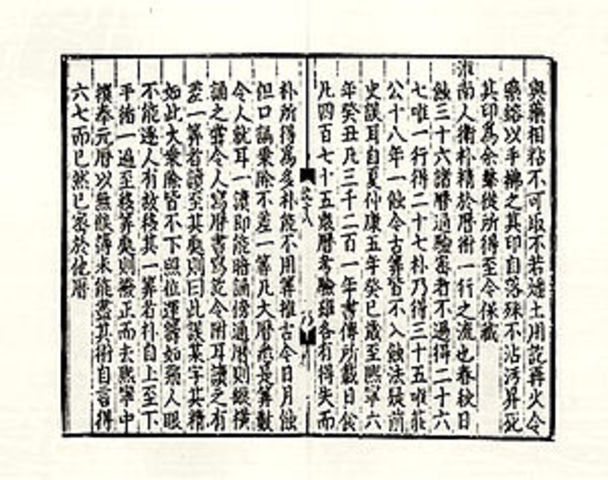 與藥相粘不可取不若燔土用訖再火令
藥鎔以手拂之其印自落殊不沾污昇死
其印爲余羣從所得至今保藏
淮南人衛朴精於曆術一行之流也春秋日
蝕三十六諸曆通驗密者不過得二十六
七唯一行得二十七朴乃得三十五唯莊
公十八年一蝕今古算皆不入蝕法疑前
史誤耳自夏仲康五年癸巳歲至熙寧六
年癸丑凡三千二百一年書傳所載日食
凡四百七十五衆曆考驗雖各有得失而
朴所得爲多朴能不用算推古今日月蝕
但口誦乘除不差一算凡大曆悉是算數
令人就耳一讀即能暗誦傍通曆則縱橫
誦之嘗令人寫曆書寫訖令附耳讀之有
差一算者讀至其處則曰此誤某字其精
如此大乘除皆不下照位運籌如飛人眼
不能逐人有故移其一算者朴自上至下
手循一遍至移算處則撥正而去熙寧中
撰奉元曆以無候簿未能盡其術自言得
六七而已然已密於他曆